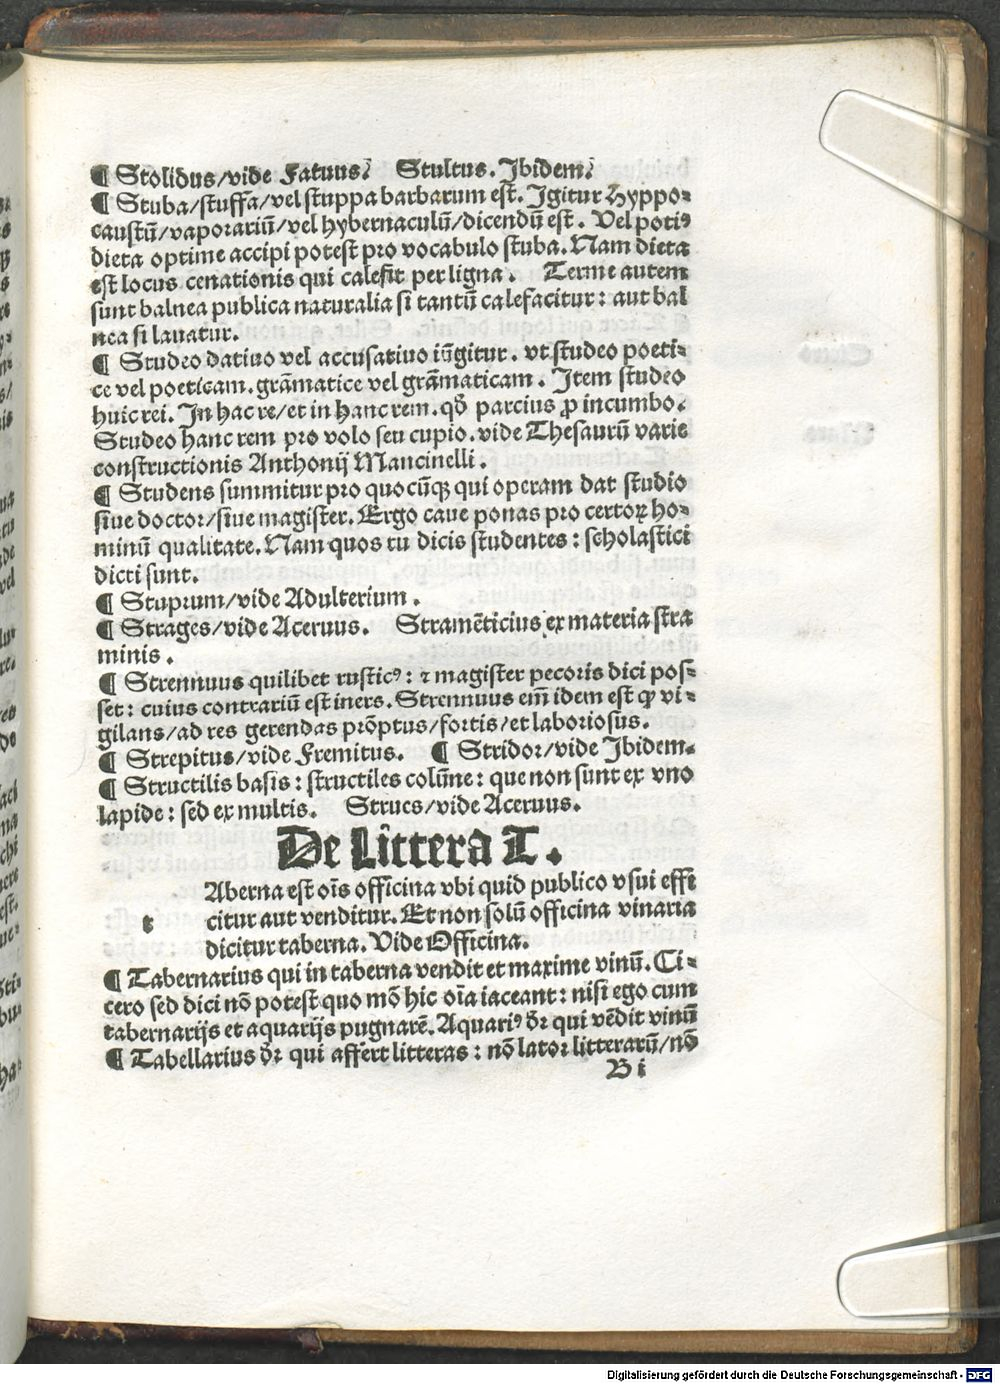 ¶ Stolidus/vide Fatuus? Stultus. Ibidem?
¶ Stuba/stuffa/vel stuppa barbarum est. Igitur Hyppo-
caustū/vaporariū/vel hybernaculū/dicendū est. Vel potiꝰ
dieta optime accipi potest pro vocabulo stuba. Nam dieta
est locus cenationis qui calefit per ligna. Terme autem
sunt balnea publica naturalia si tantū calefacitur: aut bal
nea si lauatur.
¶ Studeo datiuo vel accusatiuo iūgitur. vt studeo poeti-
ce vel poeticam. grāmatice vel grāmaticam. Item studeo
huic rei. In hac re/et in hanc rem. qđ parcius ꝓ incumbo.
Studeo hanc rem pro volo seu cupio. vide Thesaurū varie
constructionis Anthonij Mancinelli.
¶ Studens summitur pro quocūqꝫ qui operam dat studio
siue doctor/siue magister. Ergo caue ponas pro certoꝝ ho-
minū qualitate. Nam quos tu dicis studentes: scholastici
dicti sunt.
¶ Stuprum/vide Adulterium.
¶ Strages/vide Aceruus. Stramēticius ex materia stra
minis.
¶ Strennuus quilibet rusticꝰ: ⁊ magister pecoris dici pos-
set: cuius contrariū est iners. Strennuus em̄ idem est ꝙ vi-
gilans/ad res gerendas prōptus/fortis/et laboriosus.
¶ Strepitus/vide Fremitus. ¶ Stridor/vide Ibidem.
¶ Structilis basis: structiles colūne: que non sunt ex vno
lapide: sed ex multis. Strues/vide Aceruus.
De Littera T.
t Aberna est oīs officina vbi quid publico vsui effi
citur aut venditur. Et non solū officina vinaria
dicitur taberna. Vide Officina.
¶ Tabernarius qui in taberna vendit et maxime vinū. Ci-
cero sed dici nō potest quo mō hic oīa iaceant: nisi ego cum
tabernarijs et aquarijs pugnarē. Aquariꝰ đr qui vēdit vinū
¶ Tabellarius đr qui affert litteras: nō lator litterarū/nō
B i
Digitalisierung gefördert durch die Deutsche Forschungsgemeinschaft - DFG